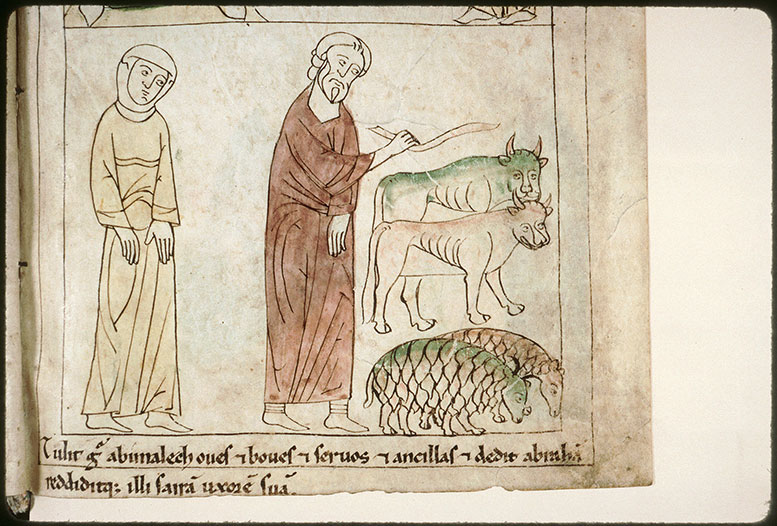 Tulit g̃ abimalech oues ⁊ boues ⁊ seruos ⁊ ancillas ⁊ dedit abrahã
reddiditq; illi sarrã uxorẽ suã.